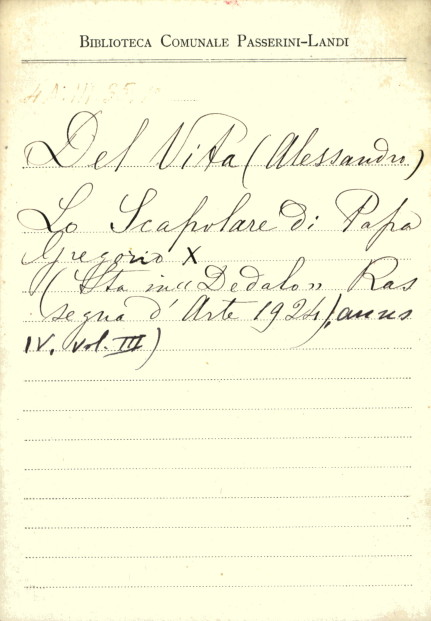 BIBLIOTECA COMUNALE PASSERINI-LANDI
Del Vita (Alessandro)
Lo Scapolare di Papa
Gregorio X
(Sta in "Dedalo" Ras
segna d'Arte 1924, anno
IV, vol. III)